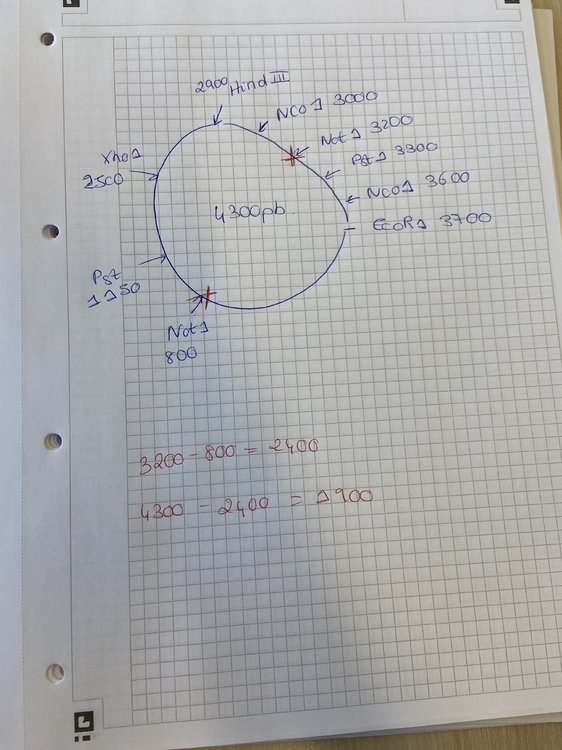 2900 Hind III
NCo1 3000
Not1 3200
Pst1 3300
NCo1 3600
EcoR1 3700
Xho1
2500
4300pb.
Pst
1150
Not1
800
3200 - 800 = 2400
4300 - 2400 = 1900